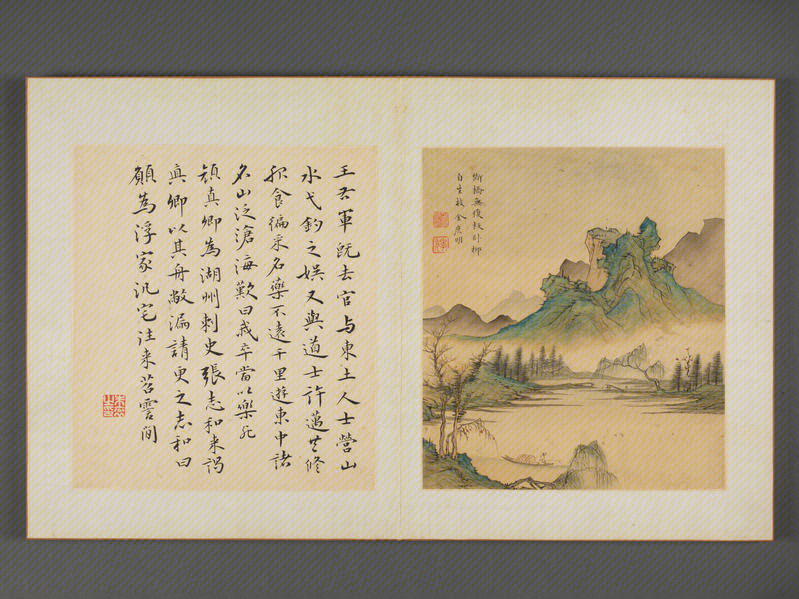 斷橋無復板卧柳
自生枝 金俊明
王右軍既去官与東土人士營山
水弋釣之娛又與道士許邁共修
服食徧采名藥不遠千里遊東中諸
名山泛滄海歎曰我卒當以樂死
顔真卿為湖州刺史張志和来謁
真卿以其舟敝漏請更之志和曰
願為浮家汎宅往来苕霅間